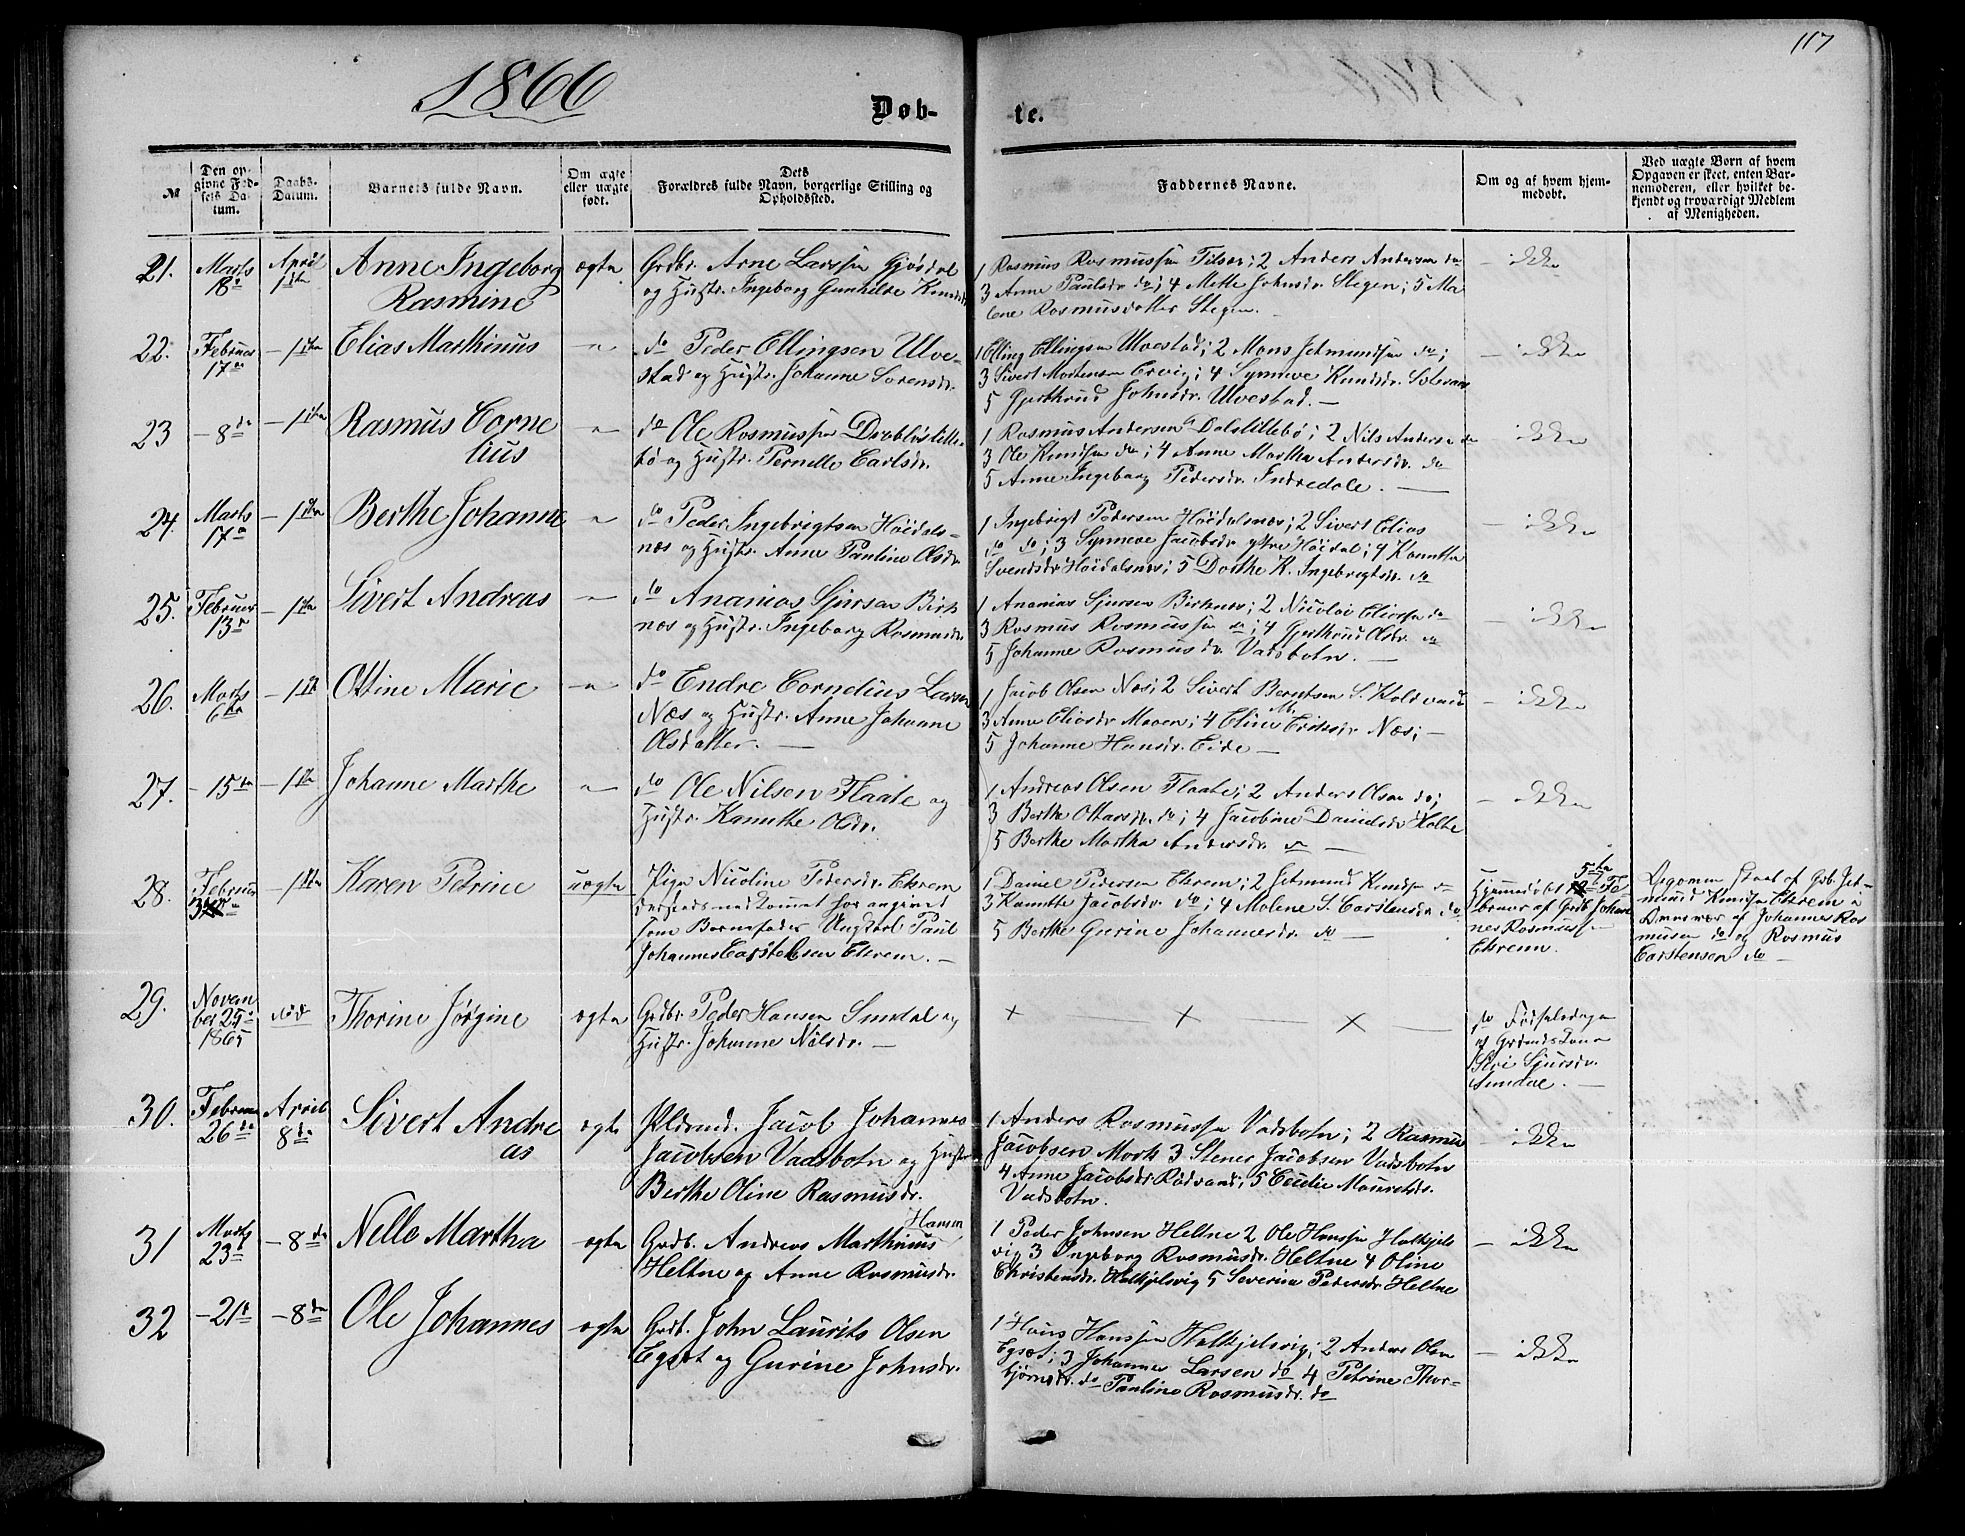 117
1866
Døb-
te.
№
Den op-
givne Fød-
sels Da-
tum.
Daabs-
Datum.
Barnets fulde Navn.
Om ægte
eller uægte
født.
Dets
Forældres fulde Navn, borgerlige Stilling og
Opholdssted.
Faddernes Navne.
Om og af hvem hjem-
medøbt.
Ved uægte Børn af hvem
Opgaven er skeet, enten Bar-
nemoderen, eller hvilket be-
kjendt og troværdigt Medlem
af Menigheden.
21.
Marts
18de
April
1ste
Anne Ingeborg
Rasmine
ægte
Grdbr. Arne Larssen Gjøsdal
og Hustr. Ingeborg Gunhilde Knudsdr
1 Rasmus Rasmussen 2 Anders Andersen do
3 Anne Paulsdr do; 4 Mette Johnsdr. Stegen; 5 Ma-
lene Rasmusdatter Stegen.
— ikke
22.
Februar
17de
— 1ste
Elias Marthinus
— " —
do Peder Ellingsen Ulve-
stad og Hustr. Johanne Sørensdr.
1 Elling Ellingsen Ulvestad; 2 Mons Jetmundsen do;
3 Sivert Mortensen Ervig; 4 Synneve Knudsdr.
5 Gjerthrud Johnsdr. Ulvestad. —
— ikke
23
— 8de
— 1ste
Rasmus Corne
lius
— " —
do Ole Rasmussen Drabløslille-
bø og Hustr. Pernille Carlsdr.
1 Rasmus Andersen Dalslillebø; 2 Nils Andersen do
3 Ole Knudsen do; 4 Anne Martha Andersdr. do
5 Anne Ingeborg Pedersdr. Indredale. —
— ikke
24.
Marts
17de
— 1ste
Berthe Johanne
— " —
do Peder Ingebrigtsen Høidals-
næs og Hustr. Anne Pauline Olsdr.
1 Ingebrigt Pedersen Høidalsnæs; 2 Sivert Elias
do do; 3 Synneve Jacobsdr. ytre Høidal; 4 Kanutte
Svendsdr. Høidalsnæs; 5 Dorthe K. Ingebrigtsdr. do
— ikke
25.
Februar
13de
— 1ste
Sivert Andreas
— " —
do Ananias Sjursen Birk
næs og Hustr. Ingeborg Rasmusdr.
1 Ananias Sjursen Birknæs; 2 Nicolai Eliassen do
3 Rasmus Rasmussen do; 4 Gjerthrud Olsdr. do
5 Johanne Rasmusdr. Vadsbotn. —
— ikke
26.
Marts
6te
— 1ste
Ottine Marie
— " —
do Endre Cornelius Larsen
Næs og Hustr. Anne Johanne
Olsdatter. —
1 Jacob Olsen Næs; 2 Sivert Berntsen S. Koldvand
3 Anne Eliasdr. Moven; 4 Eline M. Eriksdr. Næs; —
5 Johanne Hansdr. Eide —
— ikke
27.
— 15de
— 1ste
Johanne Marthe
— " —
do Ole Nilsen Flaate og
Hustr. Kanutte Olsdr.
1 Andreas Olsen Flaate; 2 Anders Olsen do;
3 Berthe Ottarsdr. do; 4 Jacobine Danielsdr. Holte
5 Berthe Martha Andersdr. do —
— ikke
28.
Februar
3de
— 1ste
Karen Petrine
uægte
Pige Nicoline Pedersdr. Ekrem
dersteds nedkommet har angivet
som Barnefader Ungkarl Paul
Johannes Carstensen Ekrem. —
1 Daniel Pedersen Ekrem; 2 Jetmund Knudsen do
3 Kanutte Jacobsdr. do; 4 Malene S. Carstensdr. do
5 Berthe Gurine Johannesdr. do —
5te
Hjemmedøbt Fe
bruar af Grdb. Johan
nes Rasmussen
Ekrem.
Opgaven skeet af Grb. Jet-
mund Knudsen Ekrem i
Overvær af Johannes Ras
musen do og Rasmus
Carstensen do —
29.
Novem
ber 25de
1865
død
Thorine Jørgine
ægte
Grdbr. Peder Hansen Sundal og
Hustr. Johanne Nilsdr. —
+ × — × —
do Fødselsdagen
af Grdmds Kone
Siri Sjursdr.
Sundal. —
30.
Februar
26de
April
8de
Sivert Andre
as
ægte
Pldsmd. Jacob Johannes
Jacobsen Vadsbotn og Hustr
Berthe Oline Rasmusdr.
1 Anders Rasmussen Vadsbotn; 2 Rasmus
Jacobsen Mork 3 Stener Jacobsen Vadsbotn
4 Anne Jacobsdr. Rødvand; 5 Cecilie Mauritsdr.
Vadsbotn.
— ikke
31
Marts
23de
— 8de
Nelle Martha
ægte
Hansen
Grdb. Andreas Marthinus
Heltne og Anne Rasmusdr.
1 Peder Johnsen Heltne 2 Ole Hanssen Halkjels
vig 3 Ingeborg Rasmusdr. Heltne 4 Oline
Christensdr. Halkjelsvig 5 Severine Pedersdr. Heltne
— ikke
32
— 21de
— 8de
Ole Johannes
ægte
Grdb. John Laurits Olsen
Egset og Gurine Johnsdr.
1 Hans Hanssen Halkjelsvig; 2 Anders Olsen
Egset; 3 Johannes Larsen do 4 Petrine Thor-
bjørnsdr. do Pauline Rasmusdr. do
— ikke